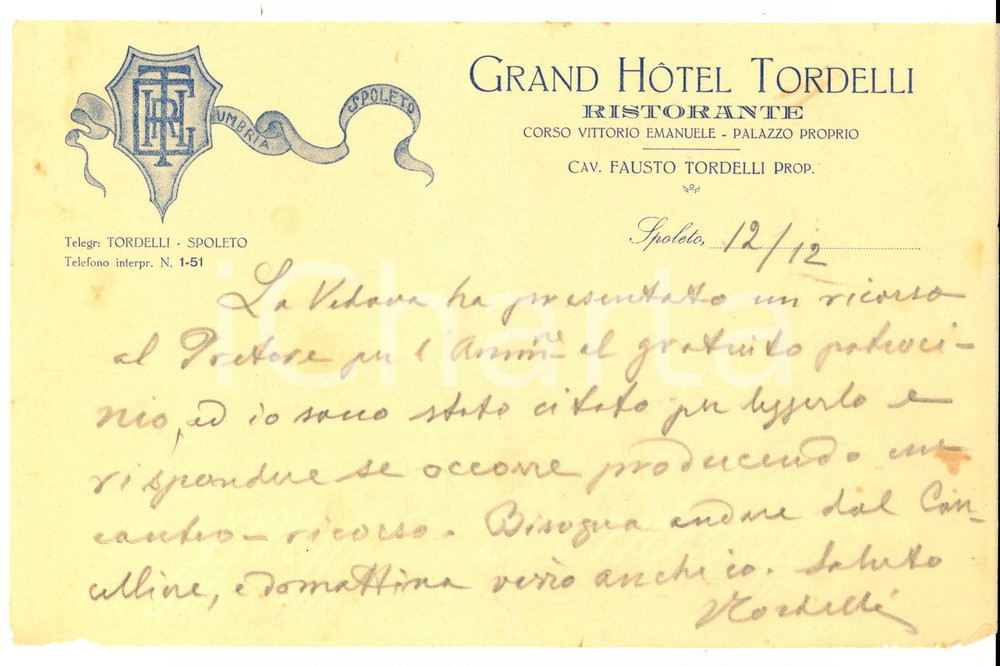 GRAND HÔTEL TORDELLI
RISTORANTE
CORSO VITTORIO EMANUELE - PALAZZO PROPRIO
CAV. FAUSTO TORDELLI PROP.
UMBRIA
SPOLETO
Telegr: TORDELLI - SPOLETO
Telefono interpr. N. 1-51
Spoleto, 12/12
La Vedova ha presentato un ricorso
al Pretore per l'Amm.ne al gratuito patroci-
nio, ed io sono stato citato per leggerlo e
rispondere se occorre producendo un
contro-ricorso. Bisogna andare dal Can-
celliere, e domattina verrò anche io. Saluto
Tordelli
iCharta